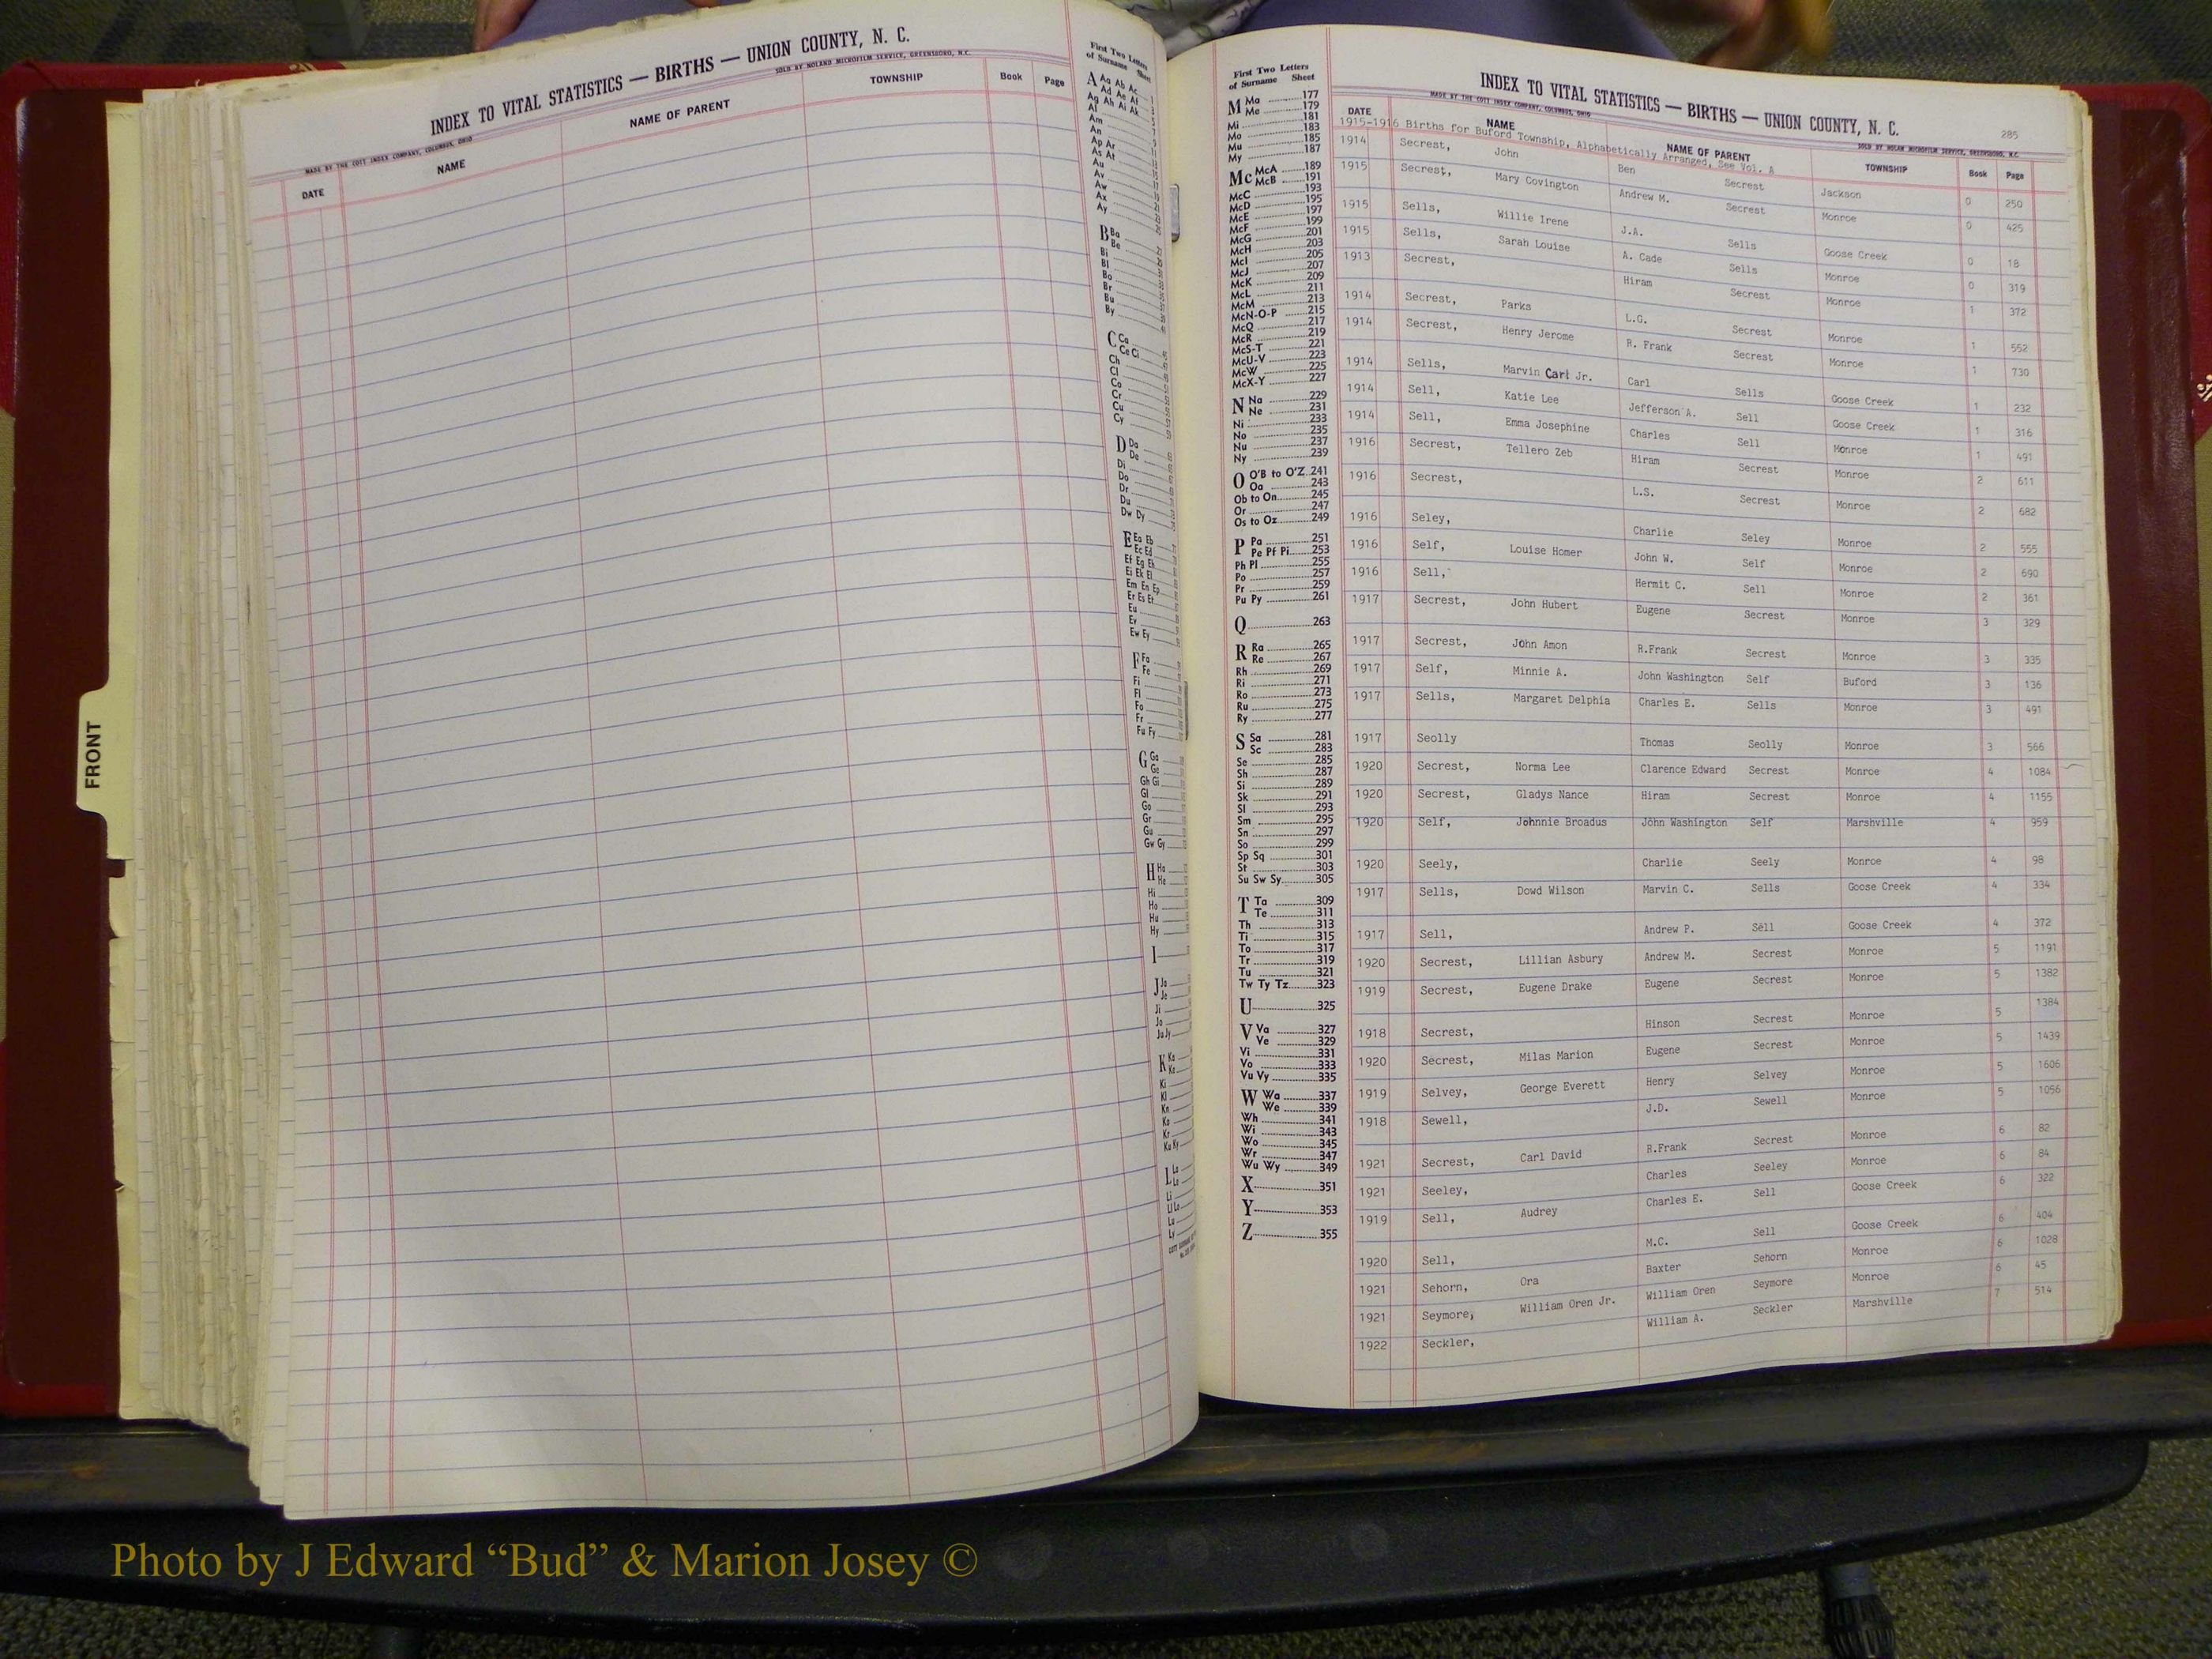 INDEX TO VITAL STATISTICS — BIRTHS — UNION COUNTY, N. C.
MADE BY THE COTT INDEX COMPANY, COLUMBUS, OHIO
SOLD BY NOLAND MICROFILM SERVICE, GREENSBORO, N.C.
DATE NAME NAME OF PARENT TOWNSHIP Book Page
First Two Letters
of Surname Sheet
A Aa Ab Ac
Ad Ae Af
Ag Ah Ai Ak
Al
Am
An
Ap Ar
As At
Au
Av
Aw
Ax
Ay
B Ba
Be
Bi
Bl
Bo
Br
Bu
By
C Ca
Ce Ci
Ch
Cl
Co
Cr
Cu
Cy
D Da
De
Di
Do
Dr
Du
Dw Dy
E Ea Eb
Ec Ed
Ef Eg Eh
Ei Ek El
Em En Ep
Er Es Et
Eu
Ev
Ew Ey
F Fa
Fe
Fi
Fl
Fo
Fr
Fu Fy
G Ga
Ge
Gh Gi
Gl
Go
Gr
Gu
Gw Gy
H Ha
He
Hi
Ho
Hu
Hy
I
J Ja
Je
Ji
Jo
Ju Jy
K Ka
Ke
Ki
Kl
Kn
Ko
Kr
Ku Ky
L La
Le
Li
Ll Lo
Lu
Ly
FRONT
First Two Letters
of Surname Sheet
M Ma 177
Me 179
Mi 181
Mo 183
Mu 185
My 187
Mc McA 189
McB 191
McC 193
McD 195
McE 197
McF 199
McG 201
McH 203
McI 205
McJ 207
McK 209
McL 211
McM 213
McN-O-P 215
McQ 217
McR 219
McS-T 221
McU-V 223
McW 225
McX-Y 227
N Na 229
Ne 231
Ni 233
No 235
Nu 237
Ny 239
O O'B to O'Z 241
Oa 243
Ob to On 245
Or 247
Os to Oz 249
P Pa 251
Pe Pf Pi 253
Ph Pl 255
Po 257
Pr 259
Pu Py 261
Q 263
R Ra 265
Re 267
Rh 269
Ri 271
Ro 273
Ru 275
Ry 277
S Sa 281
Sc 283
Se 285
Sh 287
Si 289
Sk 291
Sl 293
Sm 295
Sn 297
So 299
Sp Sq 301
St 303
Su Sw Sy 305
T Ta 309
Te 311
Th 313
Ti 315
To 317
Tr 319
Tu 321
Tw Ty Tz 323
U 325
V Va 327
Ve 329
Vi 331
Vo 333
Vu Vy 335
W Wa 337
We 339
Wh 341
Wi 343
Wo 345
Wr 347
Wu Wy 349
X 351
Y 353
Z 355
INDEX TO VITAL STATISTICS — BIRTHS — UNION COUNTY, N. C.
285
MADE BY THE COTT INDEX COMPANY, COLUMBUS, OHIO
SOLD BY NOLAN MICROFILM SERVICE, GREENSBORO, N.C.
DATE NAME NAME OF PARENT TOWNSHIP Book Page
1915-1916 Births for Buford Township, Alphabetically Arranged, See Vol. A
1914 Secrest, John Ben Secrest Jackson 0 250
1915 Secrest, Mary Covington Andrew M. Secrest Monroe 0 425
1915 Sells, Willie Irene J.A. Sells Goose Creek 0 18
1915 Sells, Sarah Louise A. Cade Sells Monroe 0 319
1913 Secrest, Hiram Secrest Monroe 1 372
1914 Secrest, Parks L.G. Secrest Monroe 1 552
1914 Secrest, Henry Jerome R. Frank Secrest Monroe 1 730
1914 Sells, Marvin Carl Jr. Carl Sells Goose Creek 1 232
1914 Sell, Katie Lee Jefferson A. Sell Goose Creek 1 316
1914 Sell, Emma Josephine Charles Sell Monroe 1 491
1916 Secrest, Tellero Zeb Hiram Secrest Monroe 2 611
1916 Secrest, L.S. Secrest Monroe 2 682
1916 Seley, Charlie Seley Monroe 2 555
1916 Self, Louise Homer John W. Self Monroe 2 690
1916 Sell, Hermit C. Sell Monroe 2 361
1917 Secrest, John Hubert Eugene Secrest Monroe 3 329
1917 Secrest, John Amon R.Frank Secrest Monroe 3 335
1917 Self, Minnie A. John Washington Self Buford 3 136
1917 Sells, Margaret Delphia Charles E. Sells Monroe 3 491
1917 Seolly Thomas Seolly Monroe 3 566
1920 Secrest, Norma Lee Clarence Edward Secrest Monroe 4 1084
1920 Secrest, Gladys Nance Hiram Secrest Monroe 4 1155
1920 Self, Johnnie Broadus John Washington Self Marshville 4 959
1920 Seely, Charlie Seely Monroe 4 98
1917 Sells, Dowd Wilson Marvin C. Sells Goose Creek 4 334
1917 Sell, Andrew P. Sell Goose Creek 4 372
1920 Secrest, Lillian Asbury Andrew M. Secrest Monroe 5 1191
1919 Secrest, Eugene Drake Eugene Secrest Monroe 5 1382
1918 Secrest, Hinson Secrest Monroe 5 1384
1920 Secrest, Milas Marion Eugene Secrest Monroe 5 1439
1919 Selvey, George Everett Henry Selvey Monroe 5 1606
1918 Sewell, J.D. Sewell Monroe 5 1056
1921 Secrest, Carl David R.Frank Secrest Monroe 6 82
1921 Seeley, Charles Seeley Monroe 6 84
1919 Sell, Audrey Charles E. Sell Goose Creek 6 322
1920 Sell, M.C. Sell Goose Creek 6 404
1921 Sehorn, Ora Baxter Sehorn Monroe 6 1028
1921 Seymore, William Oren Jr. William Oren Seymore Monroe 6 45
1922 Seckler, William A. Seckler Marshville 7 514
Photo by J Edward “Bud” & Marion Josey ©